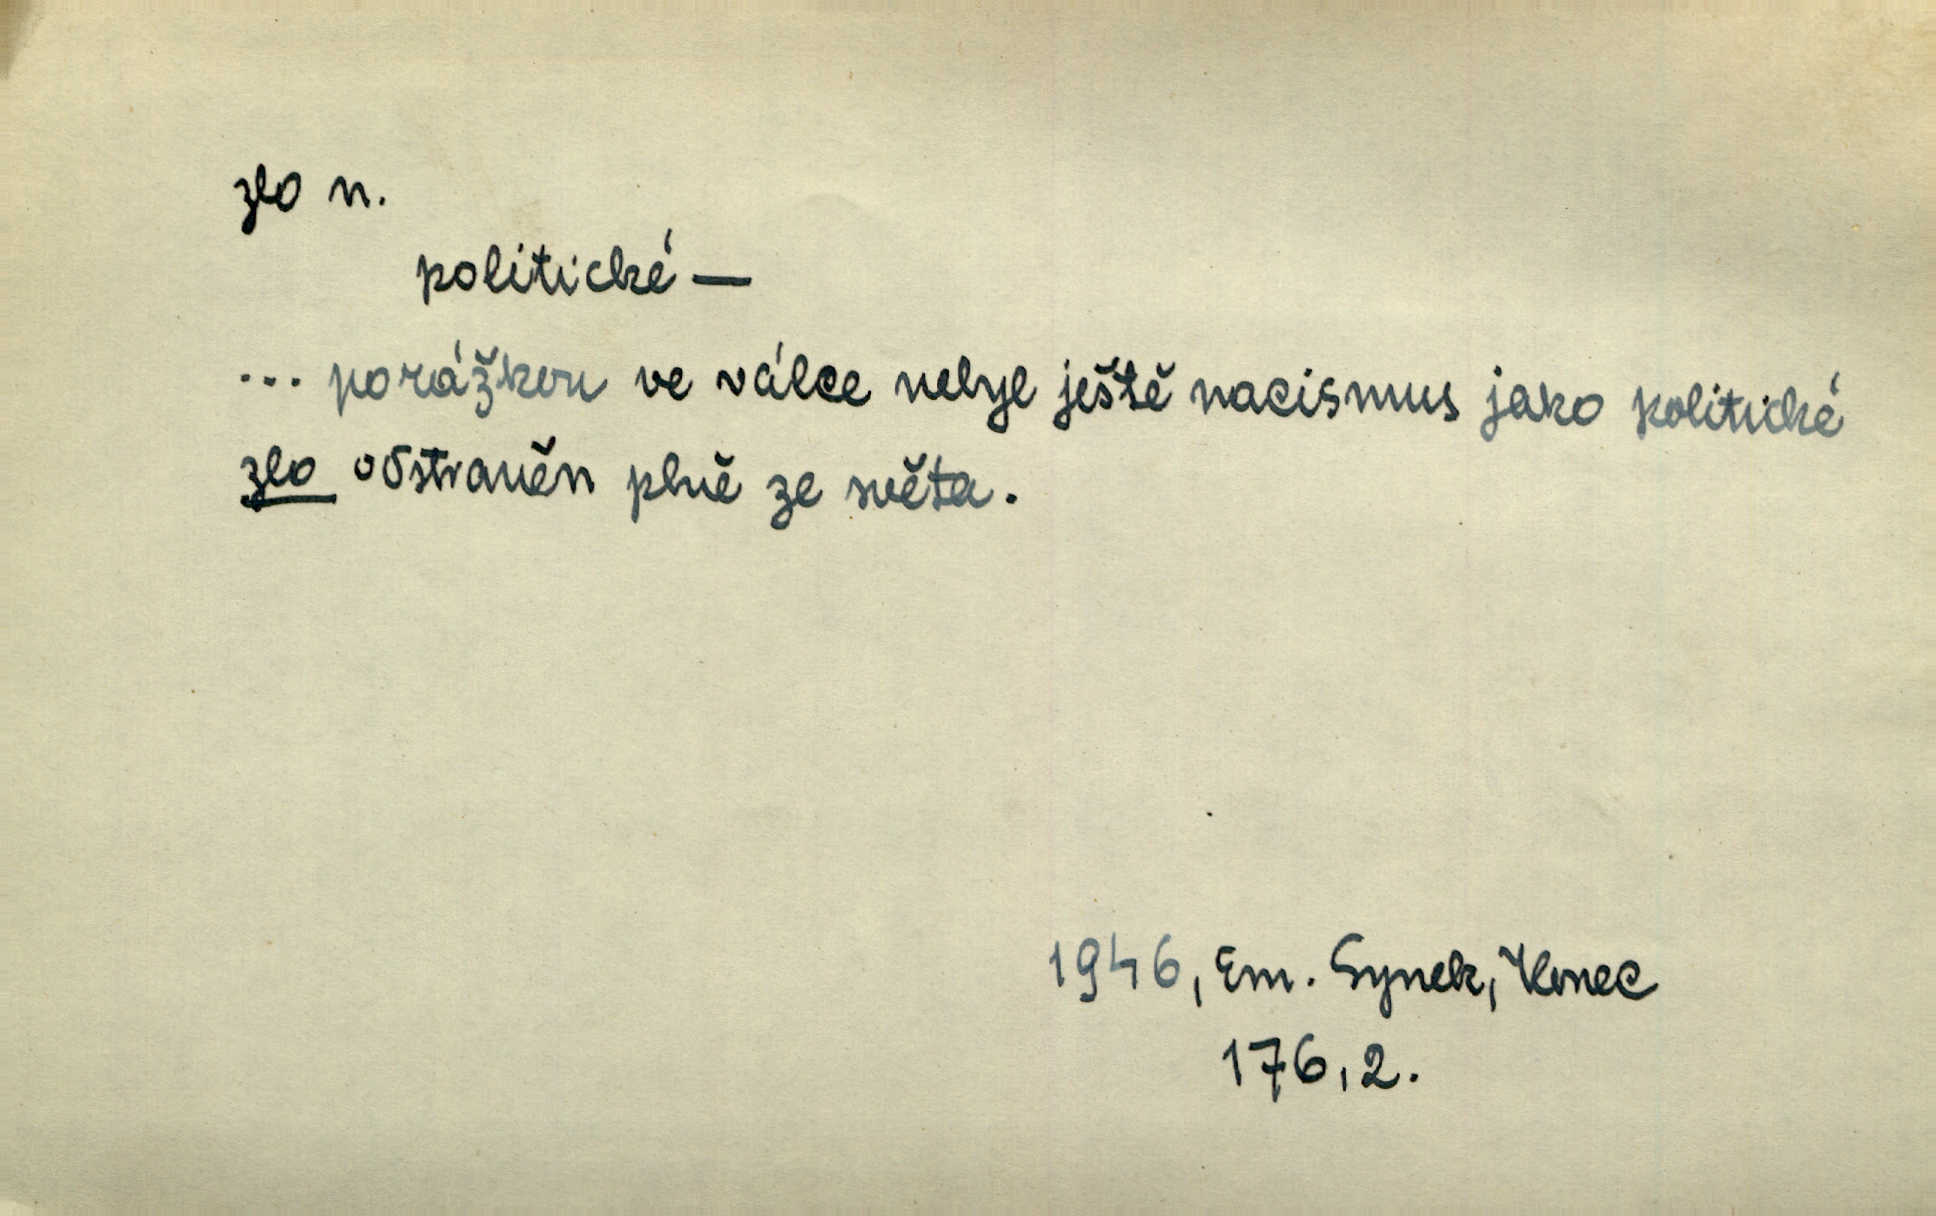 zlo n.
politické —
... porážkou ve válce nebyl ještě nacismus jako politické
zlo odstraněn plně ze světa.
1946, Em. Synek, Konec
176,2.